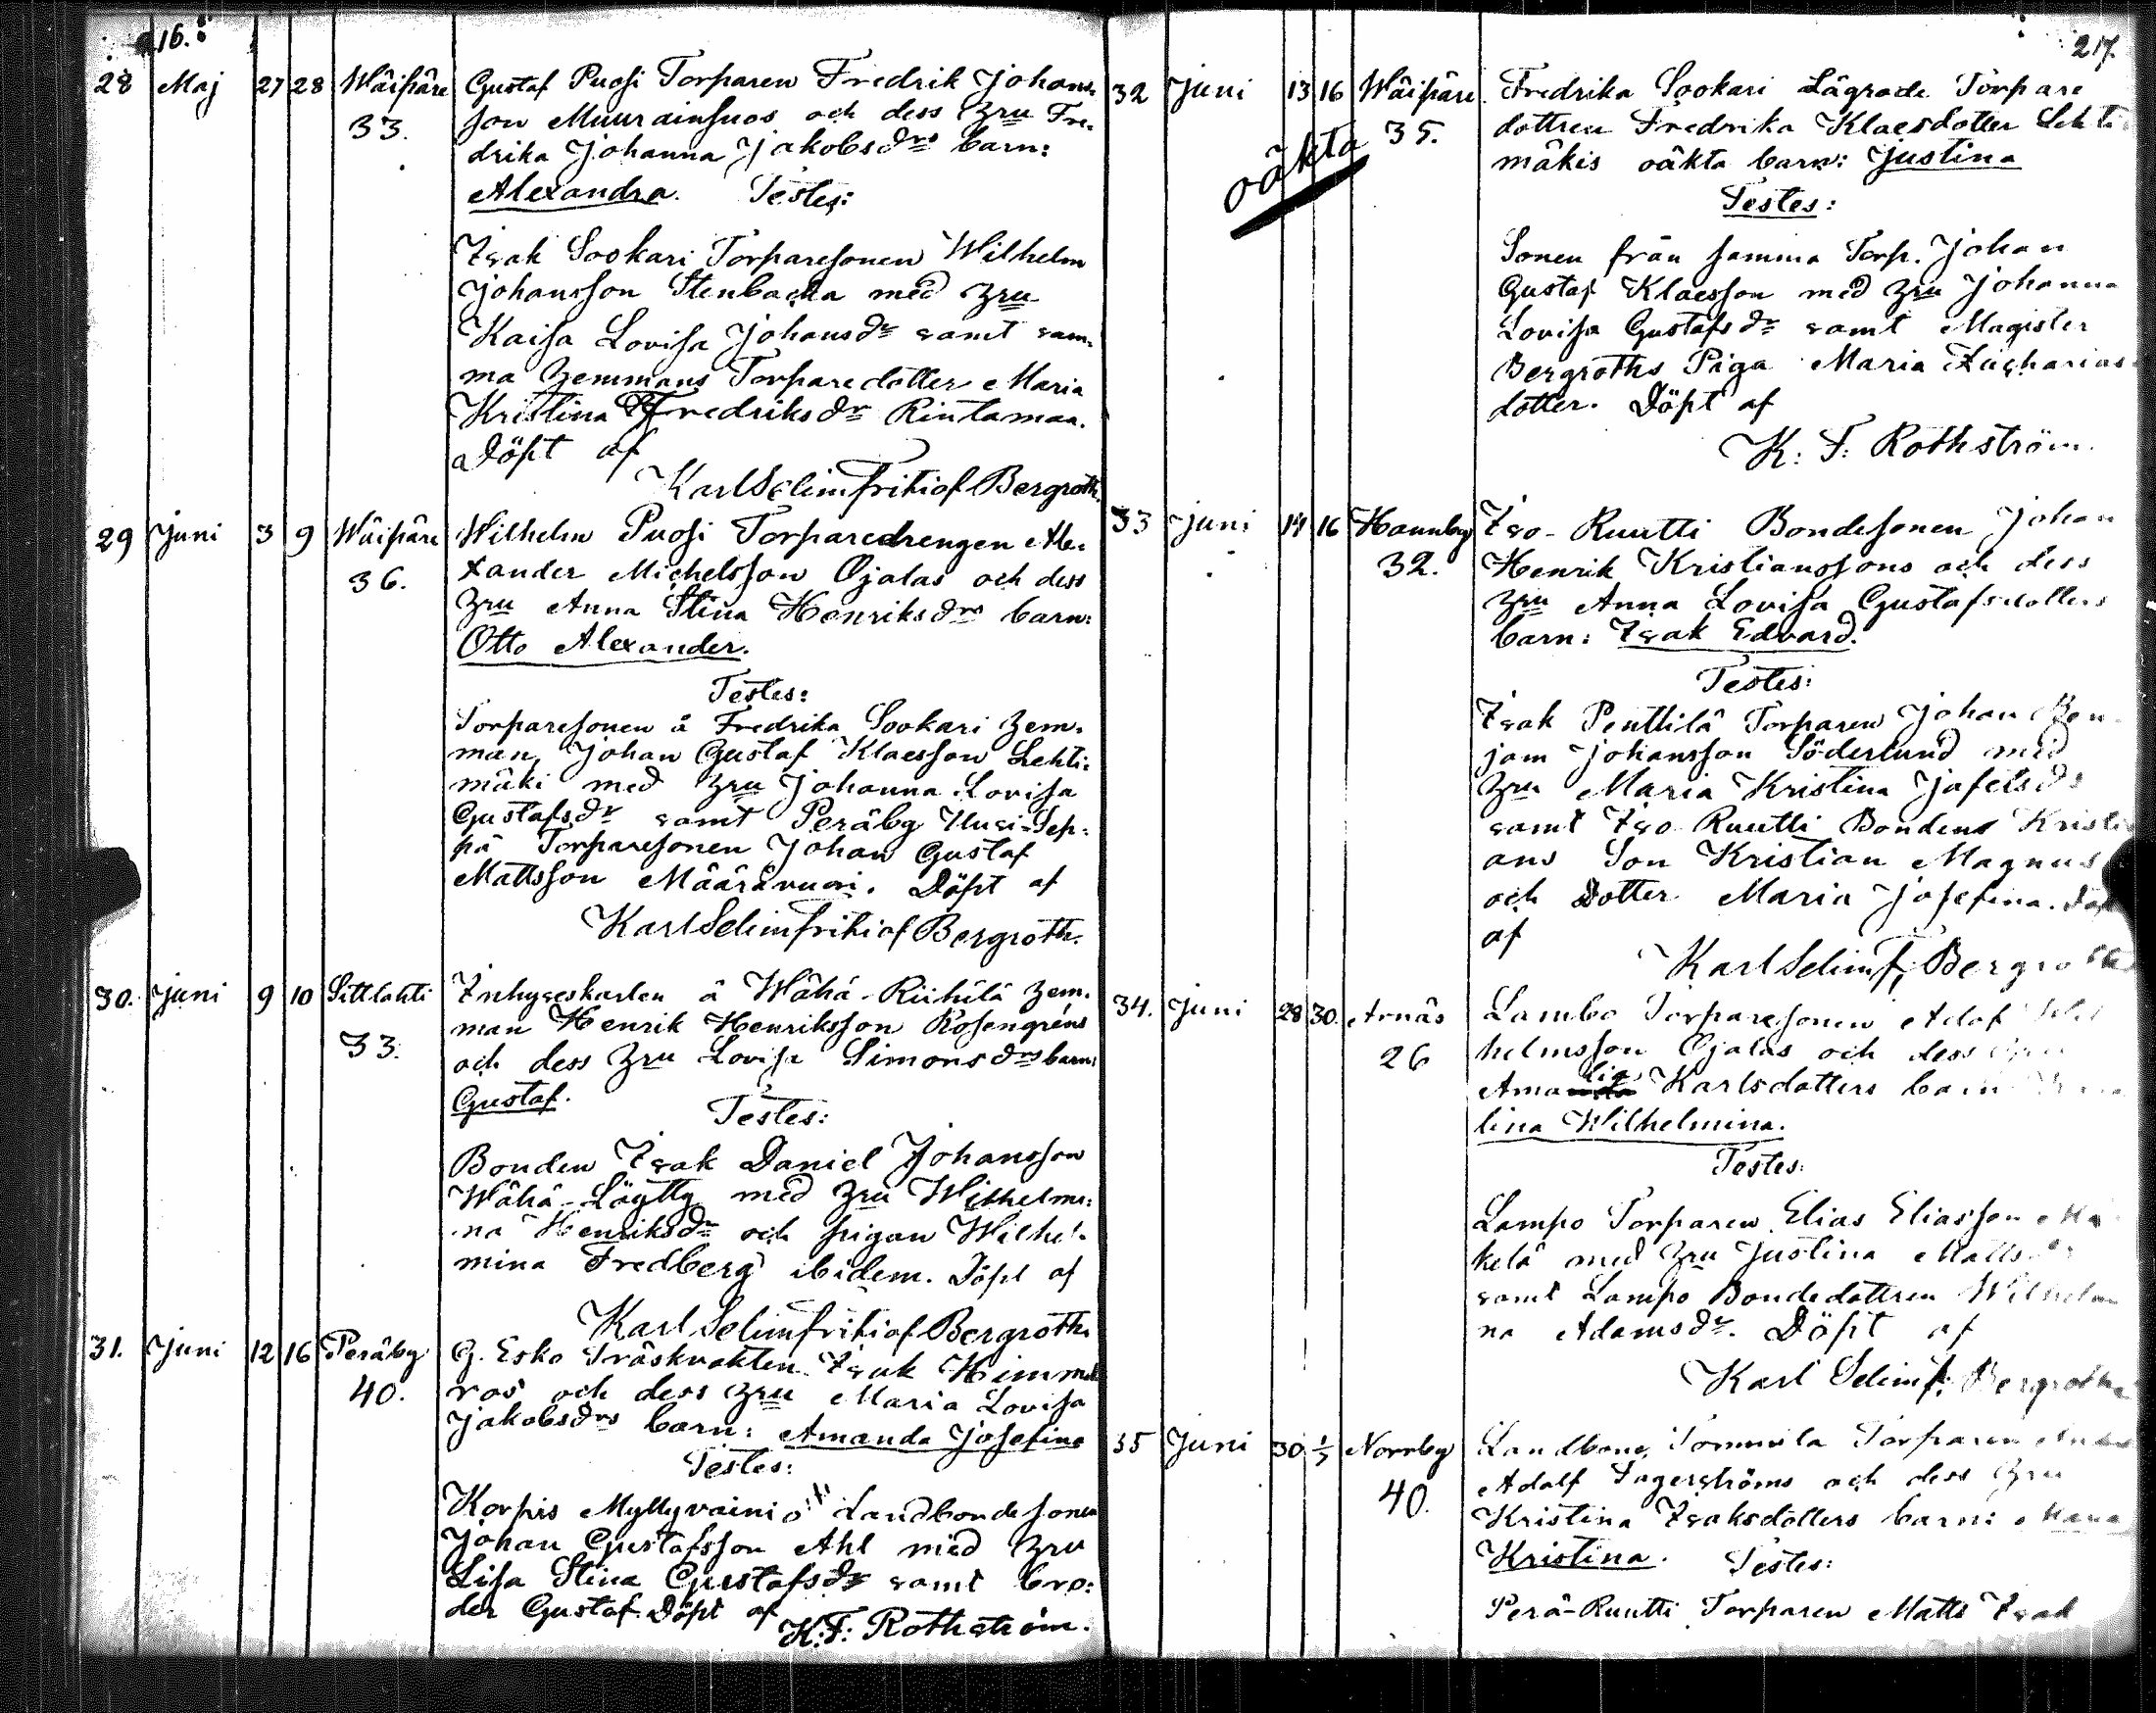 216.
28 Maj 27 28 Wäipäre Gustaf Puosi Torparen Fredrik Johans-
33. son Muurainsuos och dess Hru Fre-
drika Johanna Jakobsdrs barn:
Alexandra. Testes:
Isak Sookari Torparesonen Wilhelm
Johansson Stenbacka med Hru
Kaisa Lovisa Johansdr samt sam-
ma Hemmans Torparedotter Maria
Kristina Fredriksdr Rintamaa.
Döpt af
Karl Selim Fritiof Bergroth.
29 Juni 3 9 Wäipäre Wilhelm Puosi Torparedrengen Ale-
36. xander Michelsson Ojalas och dess
Hru Anna Stina Henriksdrs barn:
Otto Alexander.
Testes:
Torparesonen å Fredrika Sookari Hem-
man, Johan Gustaf Klaesson Lehti-
mäki med Hru Johanna Lovisa
Gustafsdr samt Peräby Uusi-Sep-
pä Torparesonen Johan Gustaf
Mattsson Määrävuori. Döpt af
Karl Selim Fritiof Bergroth.
30. Juni 9 10 Sittlahti Inhyseskarlen å Wähä-Riihilä Hem-
33. man Henrik Henriksson Rosengréns
och dess Hru Lovisa Simonsdrs barn:
Gustaf.
Testes:
Bonden Isak Daniel Johansson
Wähä-Löytty med Hru Wilhelmi-
na Henriksdr och pigan Wilhel-
mina Fredberg ibidem. Döpt af
Karl Selim Fritiof Bergroth.
31. Juni 12 16 Peräby G. Esko Träskvakten Isak Himme
40. ros och dess Hru Maria Lovisa
Jakobsdrs barn: Amanda Josefina
Testes:
Korpis Myllyvainio Landbondesonen
Johan Gustafsson Ahl med Hru
Lisa Stina Gustafsdr samt bro-
der Gustaf. Döpt af
K. F. Rothström.
217.
32 Juni 13 16 Wäipäre Fredrika Sookari Lägrade Torpare
oäkta 35. dottren Fredrika Klaesdotter Lehti
mäkis oäkta barn: Justina
Testes:
Sonen från samma Torp. Johan
Gustaf Klaesson med Hru Johanna
Lovisa Gustafsdr samt Magister
Bergroths Piga Maria Zacharias
dotter. Döpt af
K. F. Rothström.
33 Juni 14 16 Hannby Iso-Ruutti Bondesonen Johan
32. Henrik Kristianssons och dess
Hru Anna Lovisa Gustafsdotters
barn: Isak Edvard.
Testes:
Isak Penttilä Torparen Johan Ben
jam Johansson Söderlund med
Hru Maria Kristina Jafetsdr
samt Iso Ruutti Bondens Kristi
ans Son Kristian Magnus
och Dotter Maria Josefina. Döpt
af
Karl Selim F. Bergroth
34. Juni 28 30. Arnäs Lambo Torparesonen Adaf Wil
26 helmsson Ojalas och dess Hru
Amalia Karlsdotters barn
lina Wilhelmina.
Testes:
Lampo Torparen Elias Eliasson Mä
kelä med Hru Justina Mattsdr
samt Lampo Bondedottren Wilhelmi
na Adamsdr. Döpt af
Karl Selim F. Bergroth
35 Juni 30 1/7 Norrby Landbond. Tommila Torparen
40. Adolf Fagerströms och dess Hru
Kristina Isaksdotters barn: Maria
Kristina. Testes:
Perä-Ruutti Torparen Matts Isak